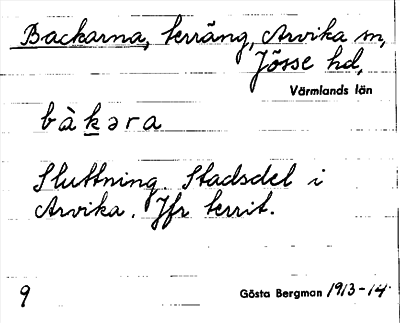 Backarna, terräng, Arvika sn,
Jösse hd,
Värmlands län
bàkəra
Sluttning. Stadsdel i
Arvika. Jfr territ.
9
Gösta Bergman 1913-14